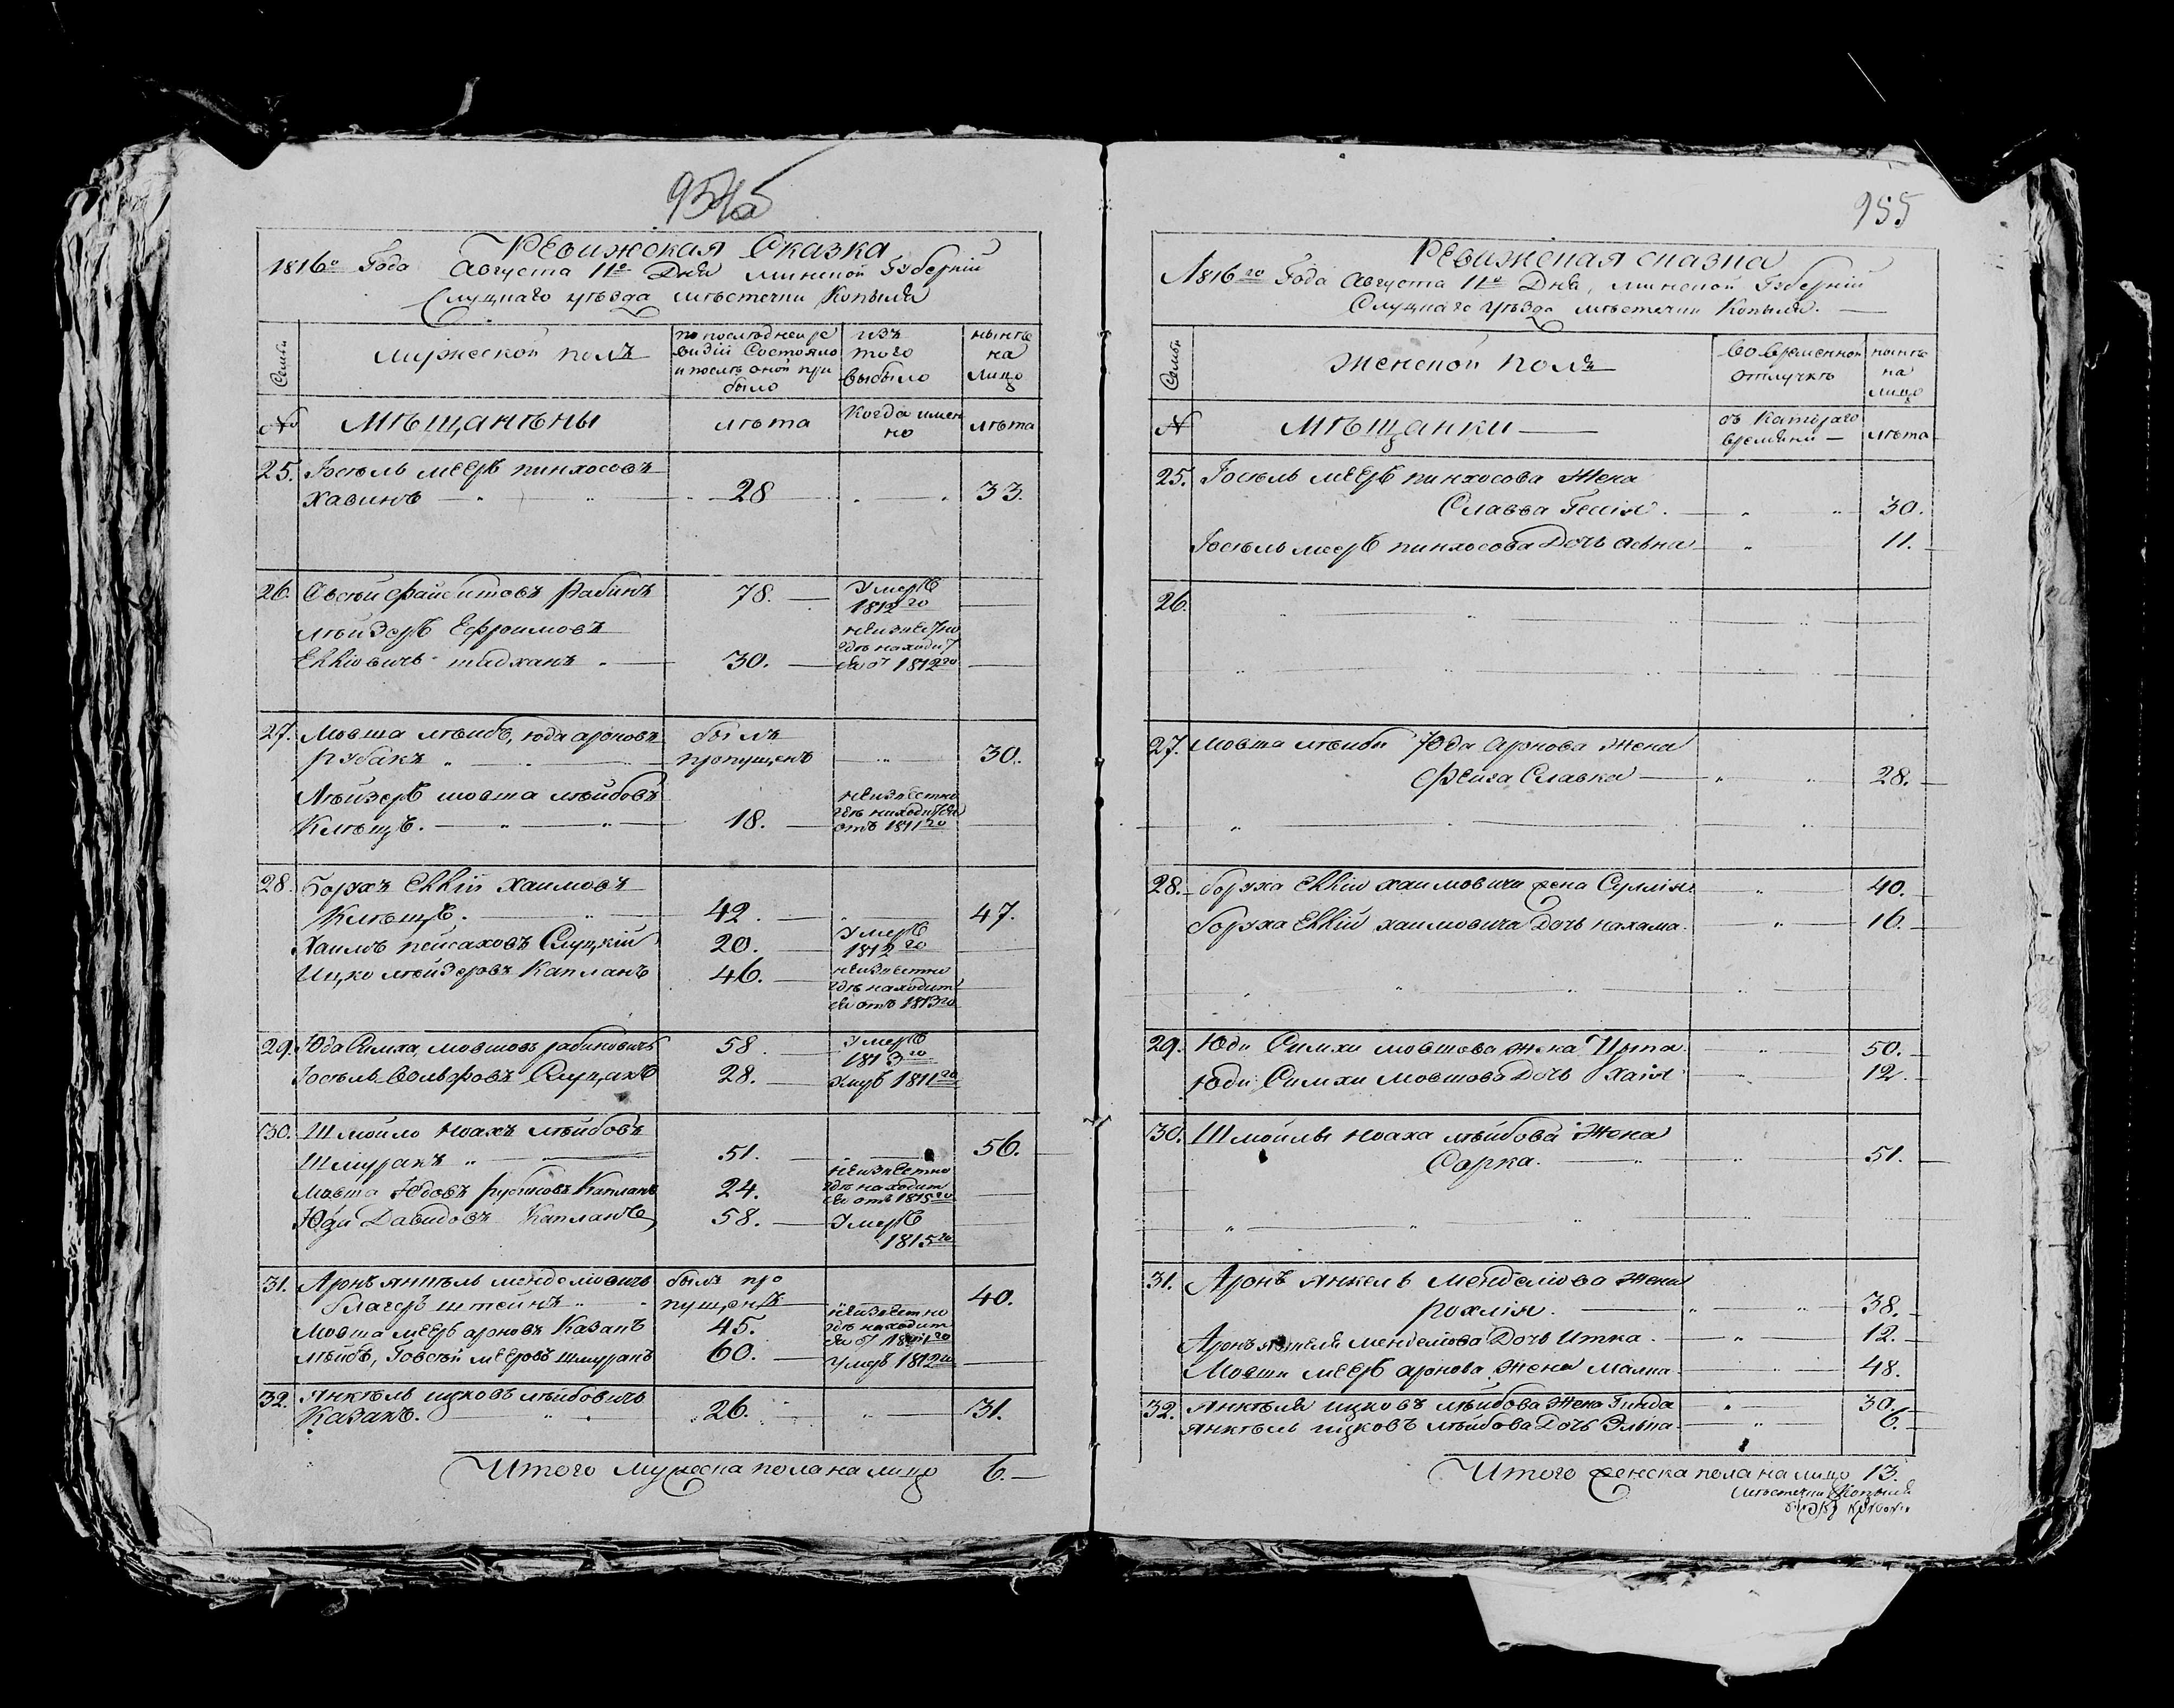 954б
Ревижская Сказка
1816го Года Августа 11го Дня Минской Губерний
Слуцкаго уѣзда мѣстечки Копыля
Семьи
Мужеской полъ
по последней ре
визій Состояло
и послѣ оной при
было
изъ
того
выбыло
нынѣ
на
лицо
№
Мѣщанѣны
лѣта
Когда имен
но
лѣта
25. Іосѣль мееръ пинхосовъ
Хавинъ 28 33.
26. Рабинъ 78. Умеръ
1812го
лѣйзеръ Ефроимовъ неизвестно
гдѣ находит
шадханъ 30. ся от 1812го
27. Мовша лѣибъ, юда ароновъ былъ
рубакъ пропущенъ 30.
Лѣйзеръ мовша лѣйбовъ неизвестно
гдѣ находится
Клѣщъ. 18. отъ 1811го
28. Борухъ Еккій хаимовъ
Клѣщъ. 42. 47.
Хаимъ пейсаховъ Слуцкій 20. Умеръ
1812го
Ицко лѣйзеровъ Капланъ 46. неизвестно
гдѣ находит
ся отъ 1813го
29. Юда Симха, мовшовъ рабиновичъ 58. Умеръ
1813го
Іосѣль Вольфовъ Слуцакъ 28. 1811го
30. Шмойло Ноахъ лѣйбовъ
Шмуракъ 51. 56.
Мовша Юдовъ рубиновъ Капланъ 24. неизвестно
гдѣ находит
ся отъ 1815го
Юди Давидовъ Капланъ 58. Умеръ
1815го
31. Аронъ янкѣль менделіовичъ былъ про
Благеръ штейнъ пущенъ 40.
Мовша мееръ ароновъ Казанъ 45. неизвестно
гдѣ находит
ся от 1811го
лѣйбъ, Говсѣй мееровъ Шмуракъ 60. Умеръ 1812го
32. Янкѣль ицковъ лѣйбовичъ
Казакъ. 26. 31.
Итого мужеска пола на лицо 6.
955
Ревижская сказка
1816го Года Августа 11го Дня, минской Губерній
Слуцкаго уѣзда мѣстечки Копыля.
Семьи
Женской полъ
Во временной
отлучкѣ
нынѣ
на
лицо
№
Мѣщанки
съ Катораго
времяни
лѣта
25. Іосѣль мееръ пинхосова Жена
Славва Гешія. 30.
Іосѣль мееръ пинхосова Дочь 11.
26.
27. Мовша лѣибы Юда аронова Жена
Фейга Славка 28.
28. Боруха Еккій хаимовича жена 40.
Боруха Еккій хаимовича Дочь нахама. 16.
29. Юды Симхи мовшова жена Ирта 50.
Юды Симхи мовшова Дочь Хаія 12.
30. Шмойлы Ноаха лѣйбова Жена
Сорка. 51.
31. Аронъ янкель менделіова Жена
рохлія. 38.
Аронъ янкеля менделіова Дочь Итка. 12.
Мовши мееръ аронова Жена малка 48.
32. Янкѣля ицковъ лѣйбова Жена Гинда 30.
Янкѣль ицковъ лѣйбова Дочь Элька 6.
Итого женска пола на лицо 13.
мѣстечки Копыля